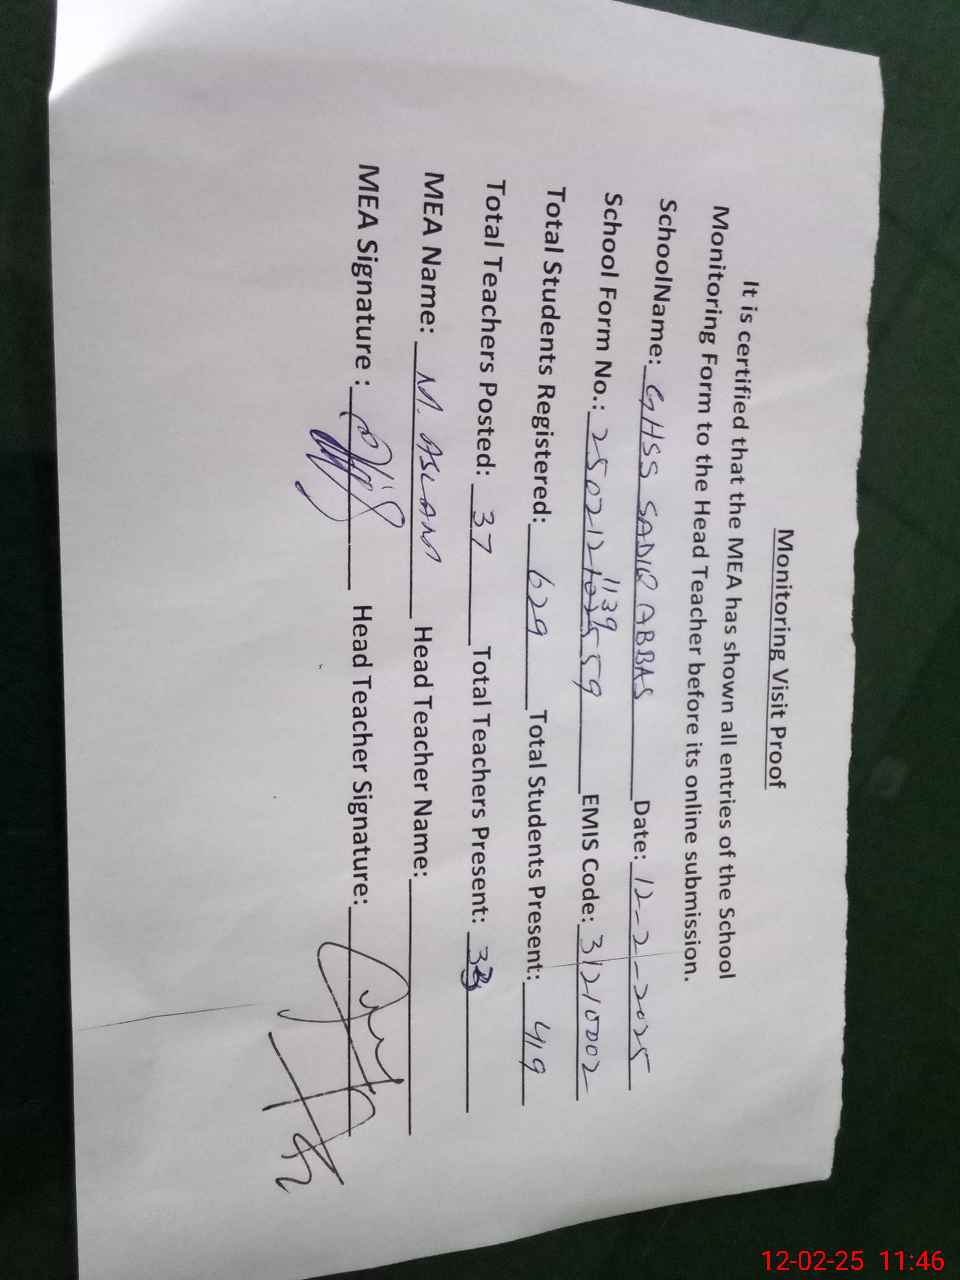 Monitoring Visit Proof
It is certified that the MEA has shown all entries of the School
Monitoring Form to the Head Teacher before its online submission.
SchoolName: GHSS SADIQ ABBAS Date: 12-2-2025
1139
School Form No.: EMIS Code: 31210002
Total Students Registered: 629 Total Students Present: 419
Total Teachers Posted: 37 Total Teachers Present:
MEA Name: M. ASLAM Head Teacher Name:
MEA Signature : Head Teacher Signature:
12-02-25 11:46